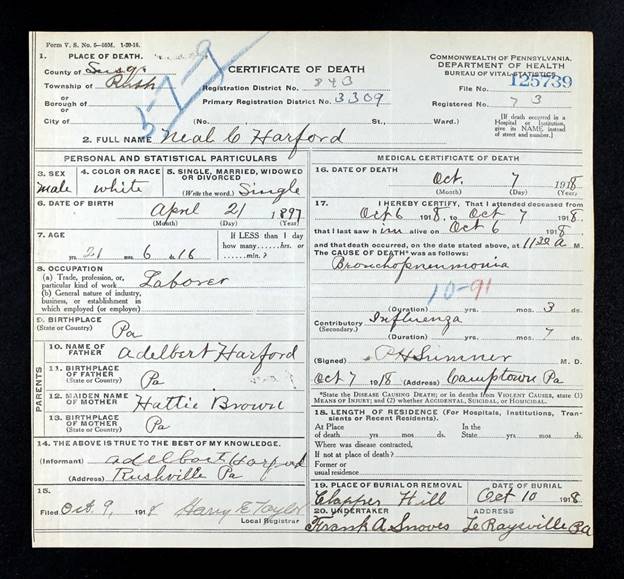 Form V. S. No. 5—50M. 1-20-16.
1. PLACE OF DEATH.
County of Susq.
Township of Rush
or
Borough of
or
City of
CERTIFICATE OF DEATH
Registration District No. 843
Primary Registration District No. 3309
(No. St., Ward.)
COMMONWEALTH OF PENNSYLVANIA.
DEPARTMENT OF HEALTH
BUREAU OF VITAL STATISTICS
File No. 125739
Registered No. 73
[If death occurred in a Hospital or Institution, give its NAME instead of street and number.]
5-7-9
2. FULL NAME Neal C Harford
PERSONAL AND STATISTICAL PARTICULARS
3. SEX
male
4. COLOR OR RACE
white
5. SINGLE, MARRIED, WIDOWED OR DIVORCED
(Write the word.) Single
6. DATE OF BIRTH
April 21 1897
(Month) (Day) (Year)
7. AGE
yrs. 21 mos. 6 ds. 16
If LESS than 1 day how many......hrs. or ......min.?
8. OCCUPATION
(a) Trade, profession, or, particular kind of work
Laborer
(b) General nature of industry, business, or establishment in which employed (or employer)
9. BIRTHPLACE
(State or Country)
Pa
PARENTS
10. NAME OF FATHER
Adelbert Harford
11. BIRTHPLACE OF FATHER
(State or Country)
Pa
12. MAIDEN NAME OF MOTHER
Hattie Brown
13. BIRTHPLACE OF MOTHER
(State or Country)
Pa
14. THE ABOVE IS TRUE TO THE BEST OF MY KNOWLEDGE.
(Informant) Adelbert Harford
(Address) Rushville Pa
15.
Filed Oct. 9, 1918 Harry E Taylor
Local Registrar
MEDICAL CERTIFICATE OF DEATH
16. DATE OF DEATH
Oct. 7 1918
(Month) (Day) (Year)
17. I HEREBY CERTIFY, That I attended deceased from
Oct 6 1918, to Oct 7 1918,
that I last saw him alive on Oct 6 1918
and that death occurred, on the date stated above, at 11 30 a M.
The CAUSE OF DEATH* was as follows:
Bronchopneumonia
10-91
(Duration) yrs. mos. 3 ds.
Contributory Influenza
(Secondary.)
(Duration) yrs. mos. 7 ds.
(Signed) P H Sumner M. D.
Oct 7 1918 (Address) Camptown Pa
*State the DISEASE CAUSING DEATH; or in deaths from VIOLENT CAUSES, state (1) MEANS OF INJURY; and (2) whether ACCIDENTAL, SUICIDAL, or HOMICIDAL.
18. LENGTH OF RESIDENCE (For Hospitals, Institutions, Transients or Recent Residents).
At Place of death yrs. mos. ds.
In the State yrs. mos. ds.
Where was disease contracted,
if not at place of death?
Former or
usual residence
19. PLACE OF BURIAL OR REMOVAL
Clapper Hill
DATE OF BURIAL
Oct 10 1918
20. UNDERTAKER
Frank A
ADDRESS
Le Raysville Pa